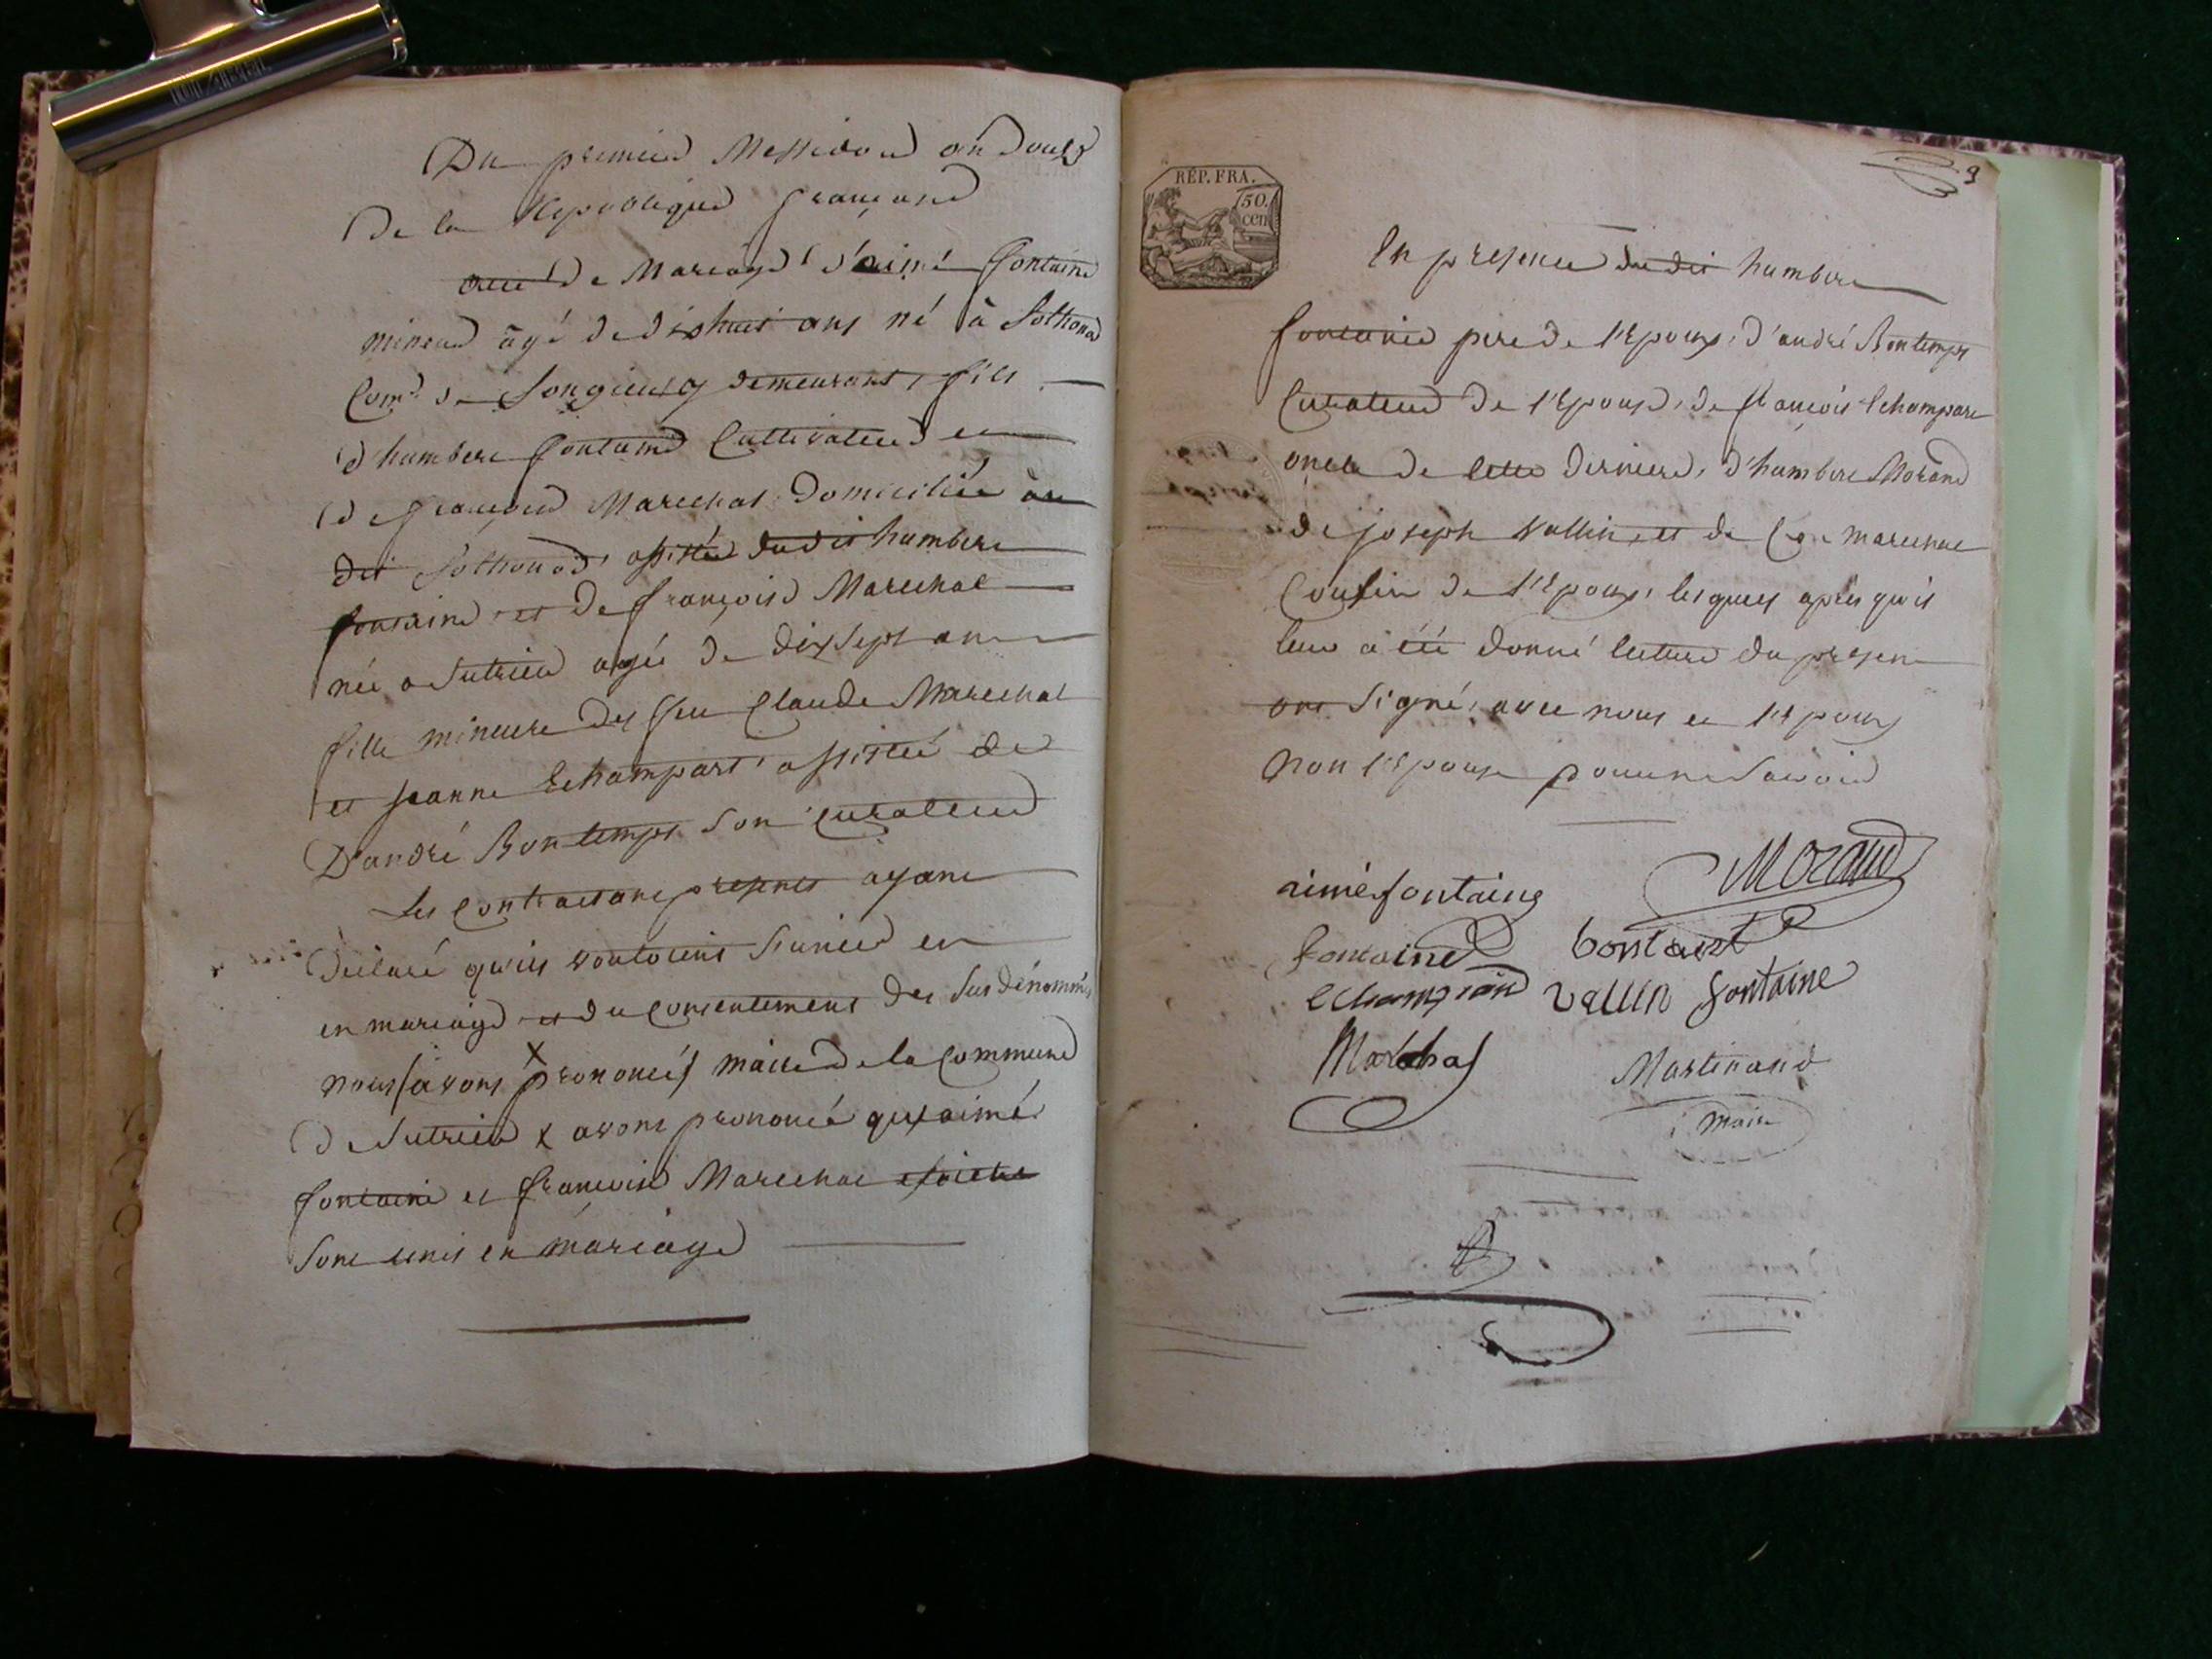 Du premier Messidor an douze
De la Republique françoise
acte de Mariage d'aimé fontaine
mineur âgé de dixhuit ans né à Sothonod
Com.e de Songieux y demeurant, fils
d'humbert fontaine Cultivateur et
de françoise Marechal domiciliée au
dit Sothonod, assisté dudit humbert
fontaine, et de françoise Marechal
née a Sutrieu agée de dix sept ans
fille mineure des feu Claude Marechal
et jeanne Echampart, assistée de
D'andré Bontemps son curateur
Les contractans presents ayant
Déclaré qu'ils vouloient s'unir en
en mariage et du consentement des susdénommés
nous avons prononcés maire de la Commune
de Sutrieu x avons prononcé qu'aimé
fontaine et françoise Marechal
sont unis en mariage
9
RÉP. FRA.
50.
cen
En presence dudit humbert
fontaine pere de l'Epoux, d'andré Bontemps
Curateur de l'Epouse, de françois Echampart
oncle de cette derniere, d'humbert Morand
de joseph Vallin, et de marechal
Cousin de l'Epouse, lesquels après qu'il
leur a été donné lecture du present
ont signé, avec nous et l'Epoux
non l'Epouse pour ne savoir
aimé fontaine
Morand
fontaine
bontant
Echampard
vallin
fontaine
Marechal
Martinand
maire